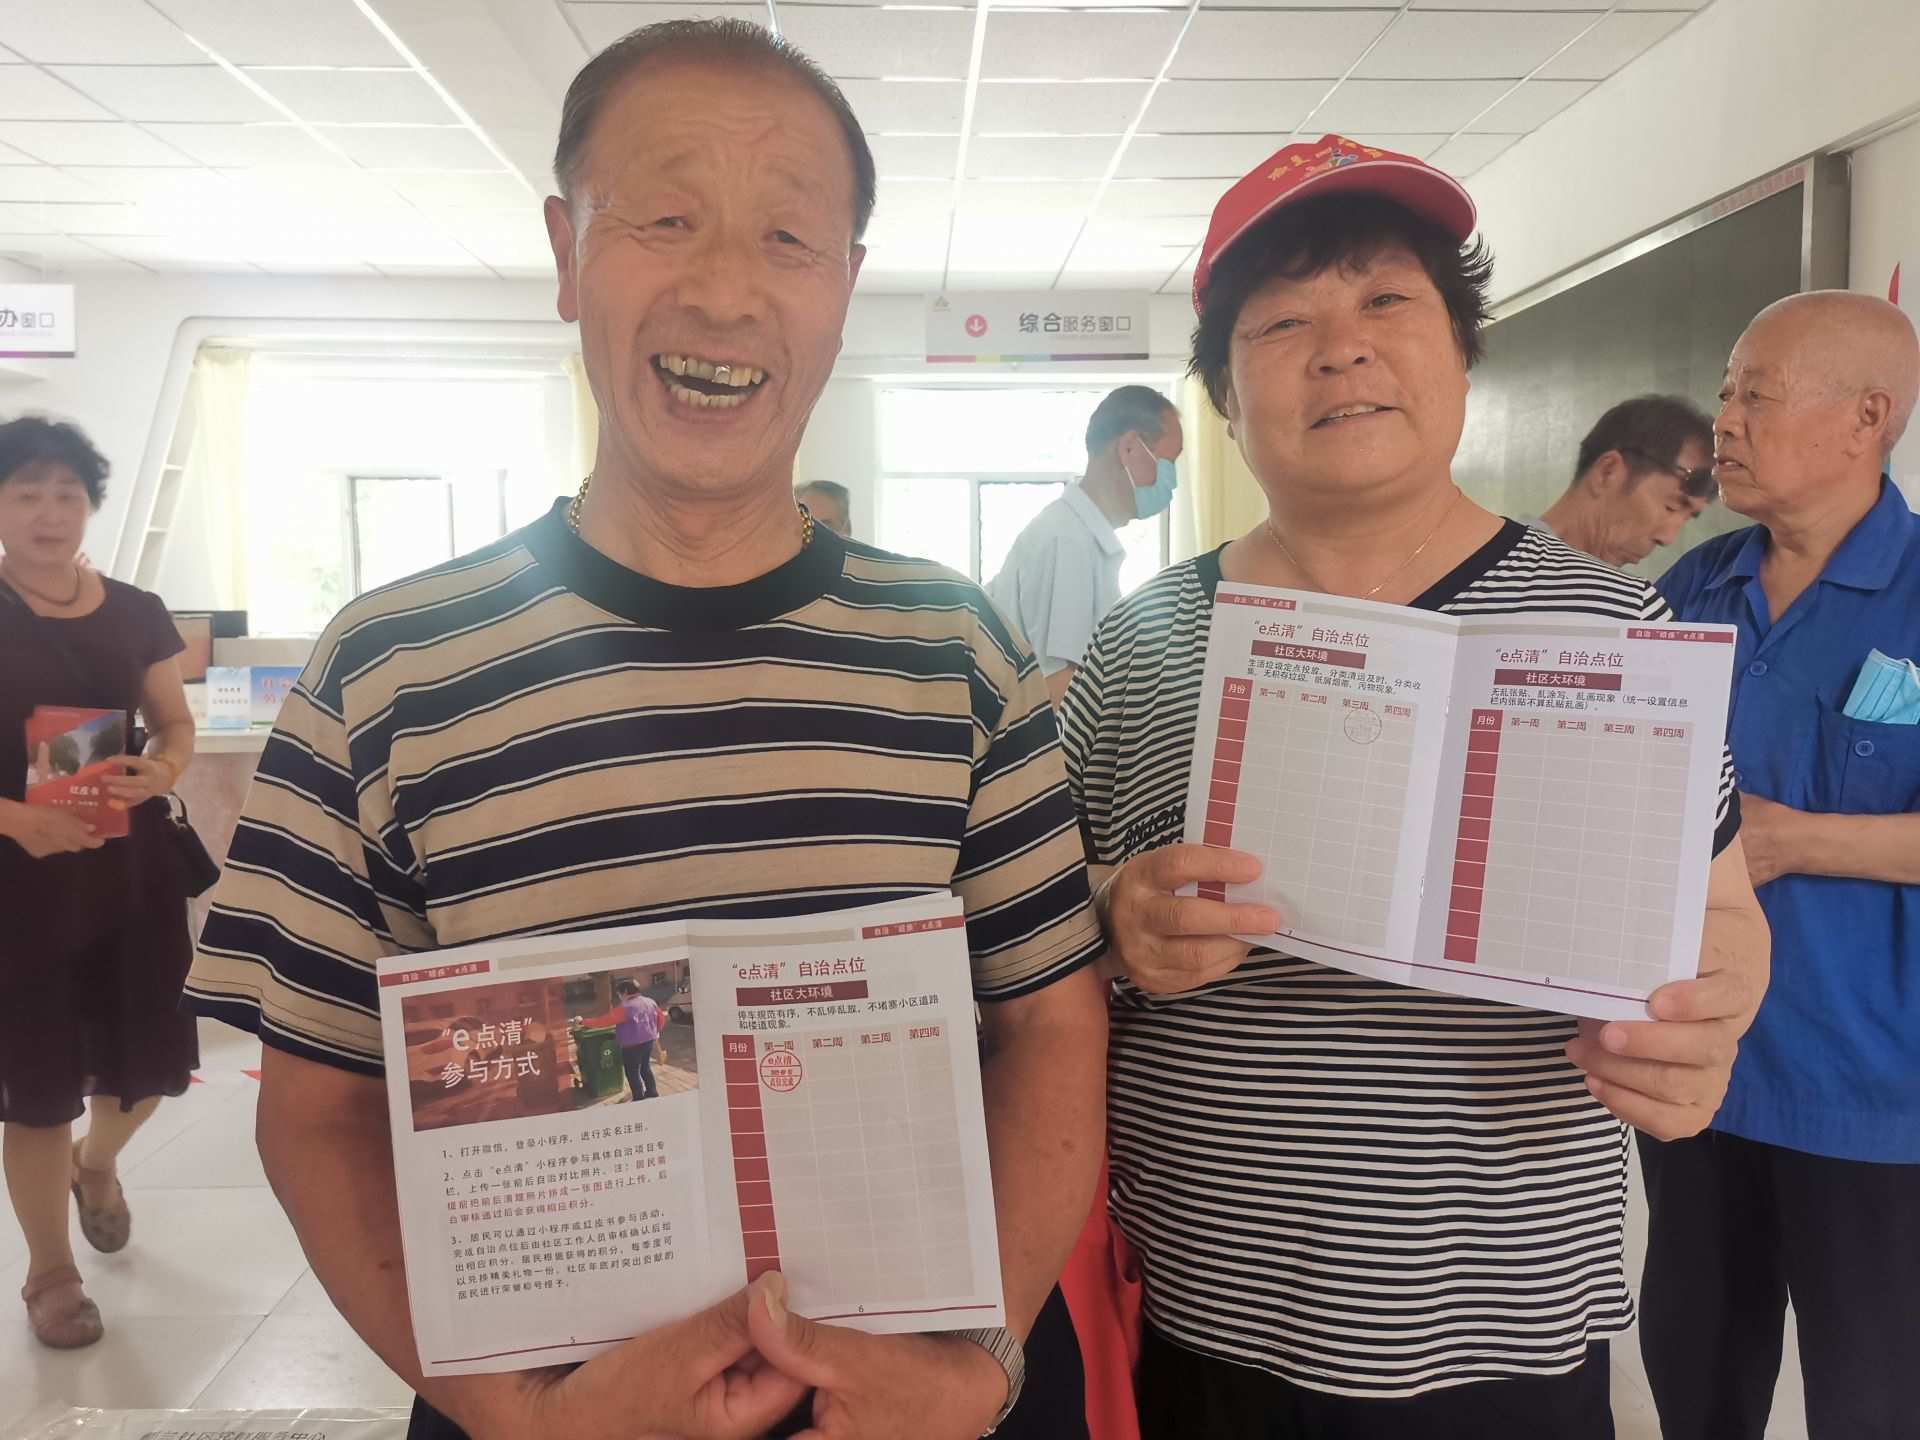 办窗口
综合服务窗口
红皮书
自治“顽疾”e点清
“e点清”
参与方式
1、打开微信，登录小程序，进行实名注册。
2、点击“e点清”小程序参与具体自治项目专
栏，上传一张前后自治对比照片。注：居民需
提前把前后清理照片拼成一张图进行上传，后
台审核通过后会获得相应积分。
3、居民可以通过小程序或红皮书参与活动，
完成自治点位后由社区工作人员审核确认后给
出相应积分。居民根据获得的积分，每季度可
以兑换精美礼物一份。社区年底对突出贡献的
居民进行荣誉称号授予。
5
自治“顽疾”e点清
“e点清”自治点位
社区大环境
停车规范有序，不乱停乱放，不堵塞小区道路
和楼道现象。
月份 第一周 第二周 第三周 第四周
e点清
6
自治“顽疾”e点清
“e点清”自治点位
社区大环境
生活垃圾定点投放、分类清运及时，分类收
集。无积存垃圾、纸屑烟蒂、污物现象。
月份 第一周 第二周 第三周 第四周
7
自治“顽疾”e点清
“e点清”自治点位
社区大环境
无乱张贴、乱涂写、乱画现象（统一设置信息
栏内张贴不算乱贴乱画）。
月份 第一周 第二周 第三周 第四周
8